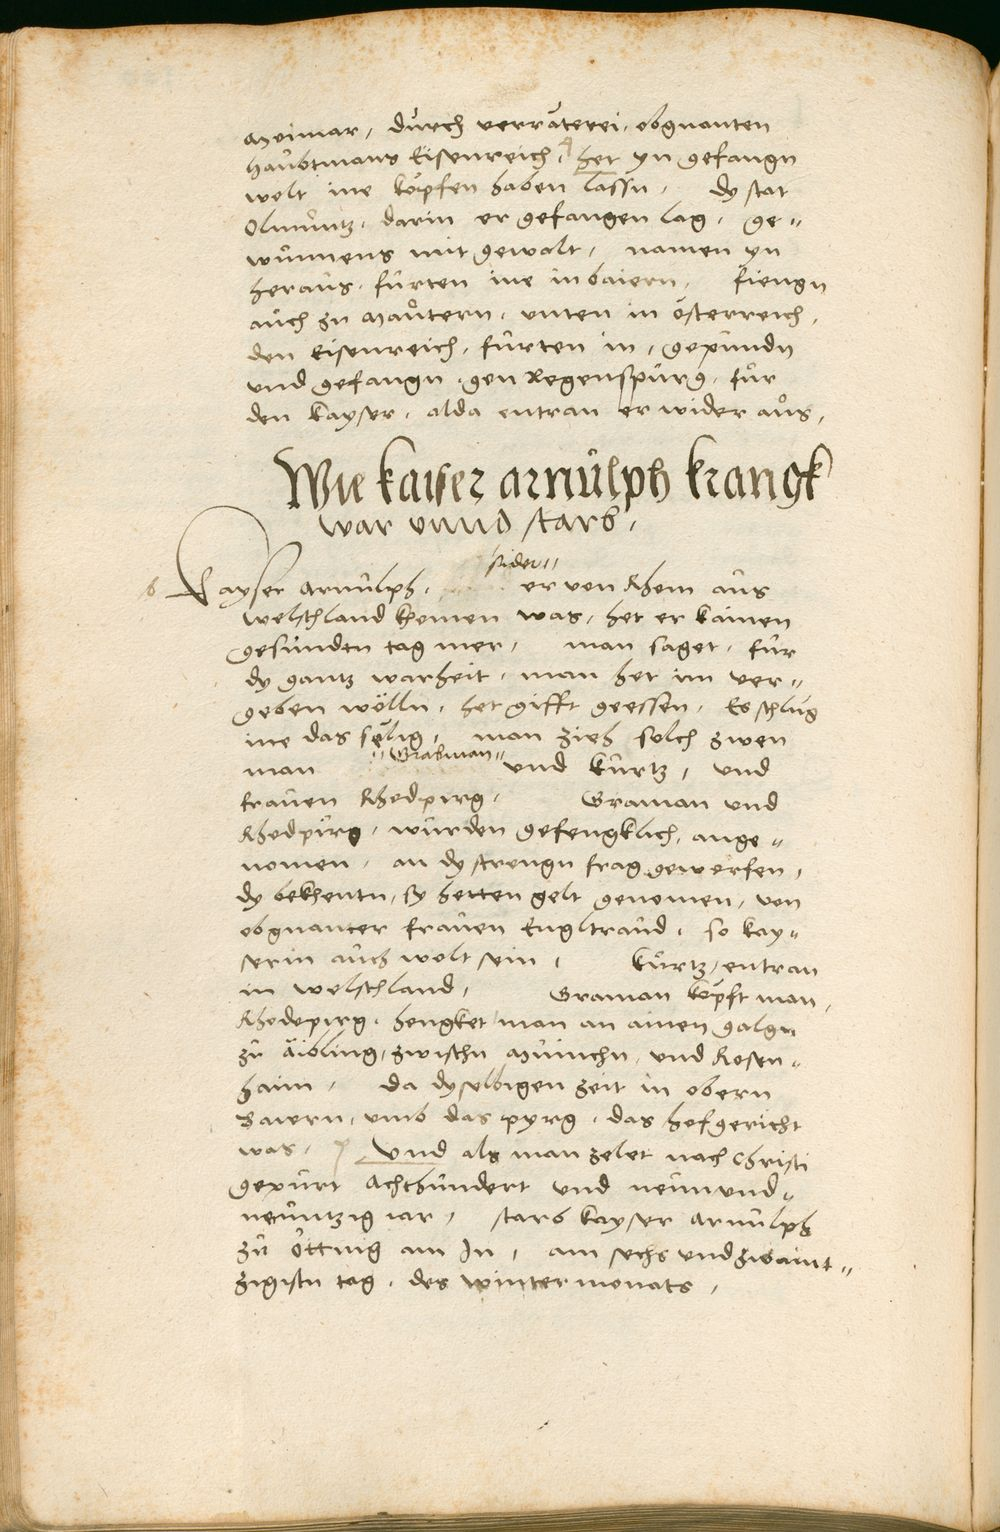 Moimar, durch verräterei, obgnanten
haubtmans Eisenreich, het yn gefangn
wolt ine köpfen haben lassn, dy stat
Olmüntz, darin er gefangen lag, ge„
wunnens mit gewalt, namen yn
heraus, fürten ine in baiern, fiengn
auch zu Mautern, unten in österreich,
den Eisenreich, fürten in, gepundn
und gefangn, gen Regenspurg, für
den kayser, alda entran er wider aus,
Wie kaiser arnulph krangk
war vnnd starb,
sider„
kayser Arnulph, er von Rhom aus
welschland khomen was, het er kainen
gesundtn tag mer, man saget, für
dy gantz warheit, man het im ver„
geben wölln, het gifft geessen, Es schlug
ine das selig, man zieh solch zwen
„Graman„
man und kurtz, und
frauen Rhodpirg, Graman und
Rhodpürg, wurden gefengklich, ange„
nomen, an dy strengn frag geworfen,
dy bekhentn, sy hetten gelt genomen, von
obgnanter frauen Engltraud, so kay„
serin auch wolt sein, kurtz, entran
in welschland, Graman köpft man,
Rhodopirg, hengket man an ainen galgn
zu äibling, zwischn Münichn, und Rosen„
haim, da dyselbigen zeit in obern
Baiern, umb das pyrg, das hofgericht
was, Und als man zelet nach Christi
gepurt Achthundert und neünund„
neüntzig iar, starb kayser Arnulph
zu ötting am In, am sechs und zwaint„
zigistn tag, des wintermonats,